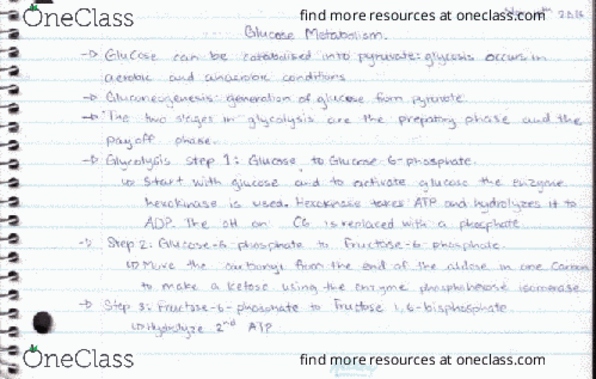 OneClass
find more resources at oneclass.com
Glucose Metabolism.
→ Glucose can be catabolised into pyruvate: glycosis occurs in
aerobic and anaerobic conditions
→ Gluconeogenesis: generation of glucose from pyruvate.
→ The two stages in glycolysis are the preparing phase and the
payoff phase.
→ Glycolysis Step 1: Glucose to Glucose-6-phosphate.
↳ Start with glucose and to activate glucose the enzyme
hexokinase is used. Hexokinase takes ATP and hydrolyzes it to
ADP. The OH on C6 is replaced with a phosphate
→ Step 2: Glucose-6-phosphate to Fructose-6-phosphate.
↳ Move the carbonyl from the end of the aldose in one carbon
to make a ketose using the enzyme phosphohexose isomerase
→ Step 3: Fructose-6-phosphate to Fructose 1,6-bisphosphate.
↳ Hydrolyze 2nd ATP
OneClass
find more resources at oneclass.com